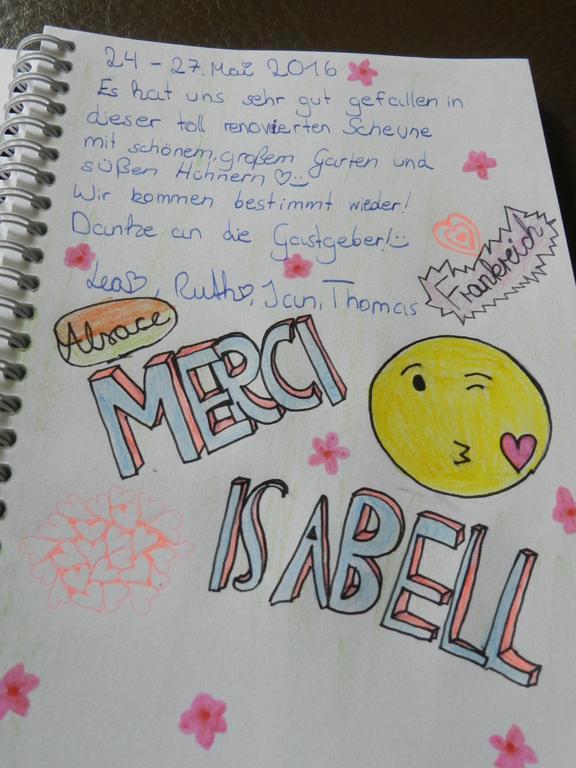 24 - 27. Mai 2016
Es hat uns sehr gut gefallen in
dieser toll renovierten Scheune
mit schönem, großem Garten und
süßen Hühnern
Wir kommen bestimmt wieder!
Danke an die Gastgeber!
Lea, Ruth, Jan, Thomas
Frankreich
Alsace
MERCI
ISABELL